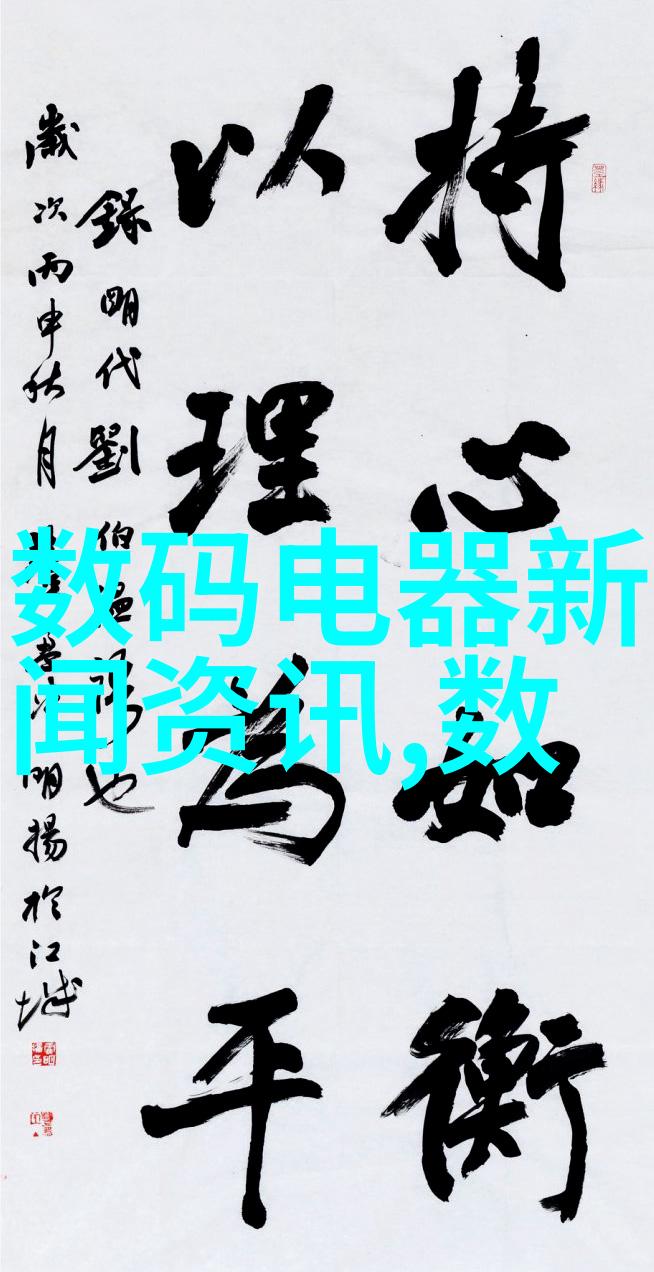 持心如衡
以理为平
錄明代劉伯温
也
歲次丙申秋月
明揚於江城
数码电器新
闻资讯,数